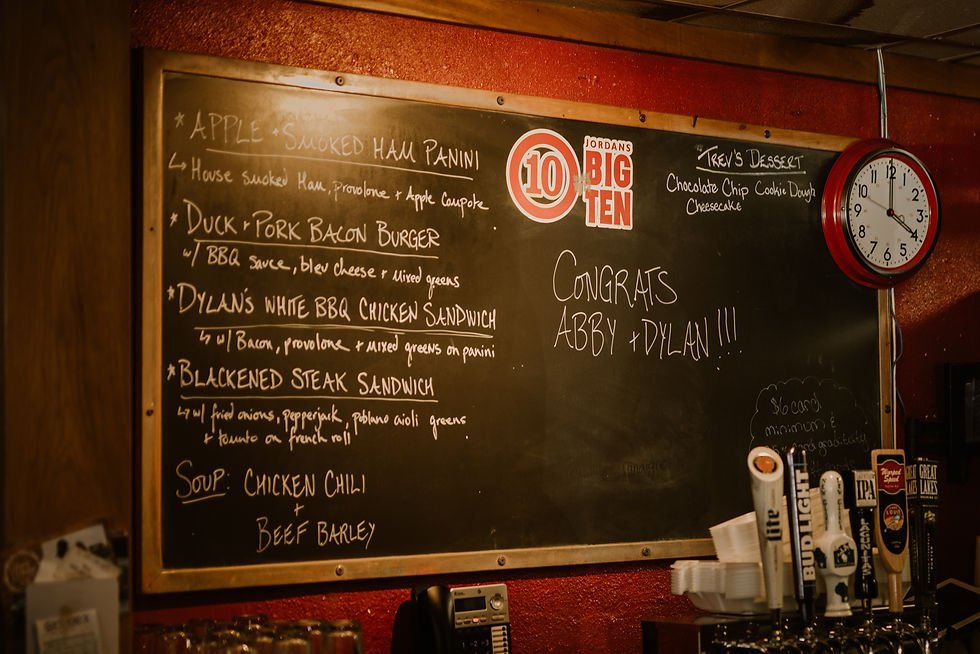 *APPLE + SMOKED HAM PANINI
↳ House smoked Ham, provolone + Apple Compote
*DUCK + PORK BACON BURGER
w/ BBQ sauce, bleu cheese + mixed greens
*DYLAN'S WHITE BBQ CHICKEN SANDWICH
↳ w/ Bacon, provolone + mixed greens on panini
*BLACKENED STEAK SANDWICH
↳ w/ fried onions, pepperjack, poblano aioli greens
+ tomato on french roll
SOUP: CHICKEN CHILI
+
BEEF BARLEY
10
JORDANS
BIG
TEN
CONGRATS
ABBY + DYLAN!!!
*TREV'S DESSERT
Chocolate Chip Cookie Dough
Cheesecake
12
1
2
3
4
5
6
7
8
9
10
11
$6 card
minimum &
gradability
Lite
BUD LIGHT
IPA
Warped
Speed
GREAT
LAKES